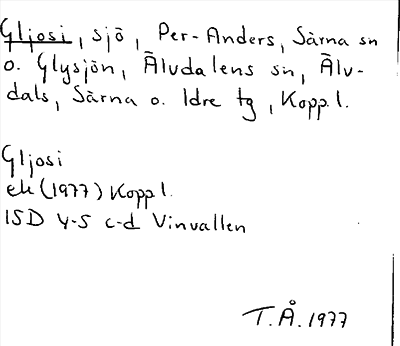 Gljosi, sjö, Per-Anders, Särna sn
o. Glysjön, Älvdalens sn, Älv-
dals, Särna o. Idre tg, Koppl.
Gljosi
ek (1977) Koppl.
15D 4-5 c-d Vinvallen
T.Å. 1977